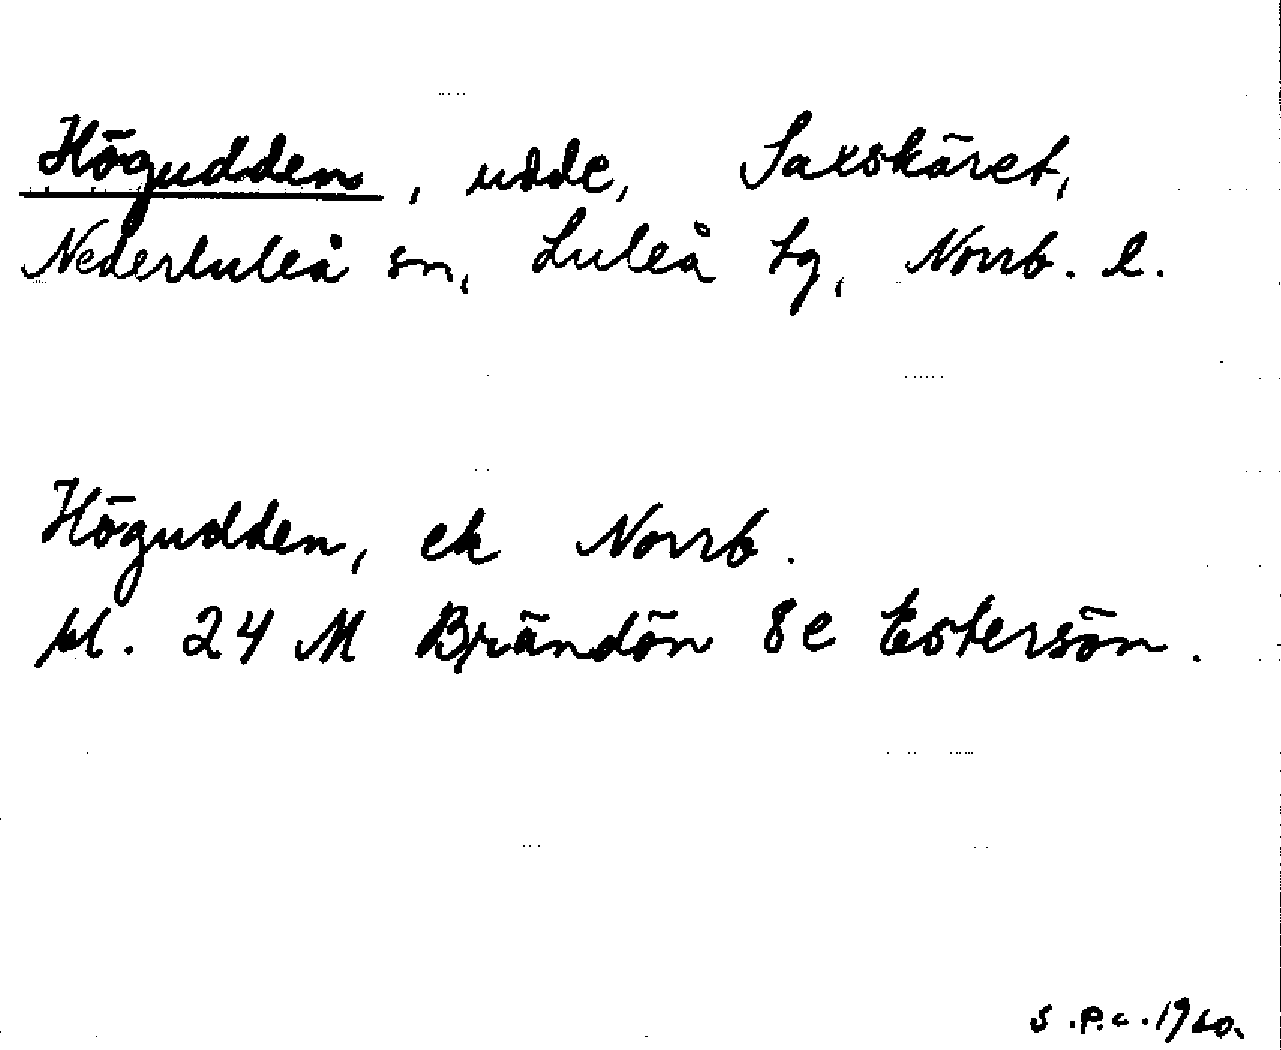 Högudden, udde, Saxskäret,
Nederluleå sn, Luleå tg, Norrb. l.
Högudden, ek Norrb.
bl. 24 M Brändön 8e Estersön.
S.P.C. 1960.